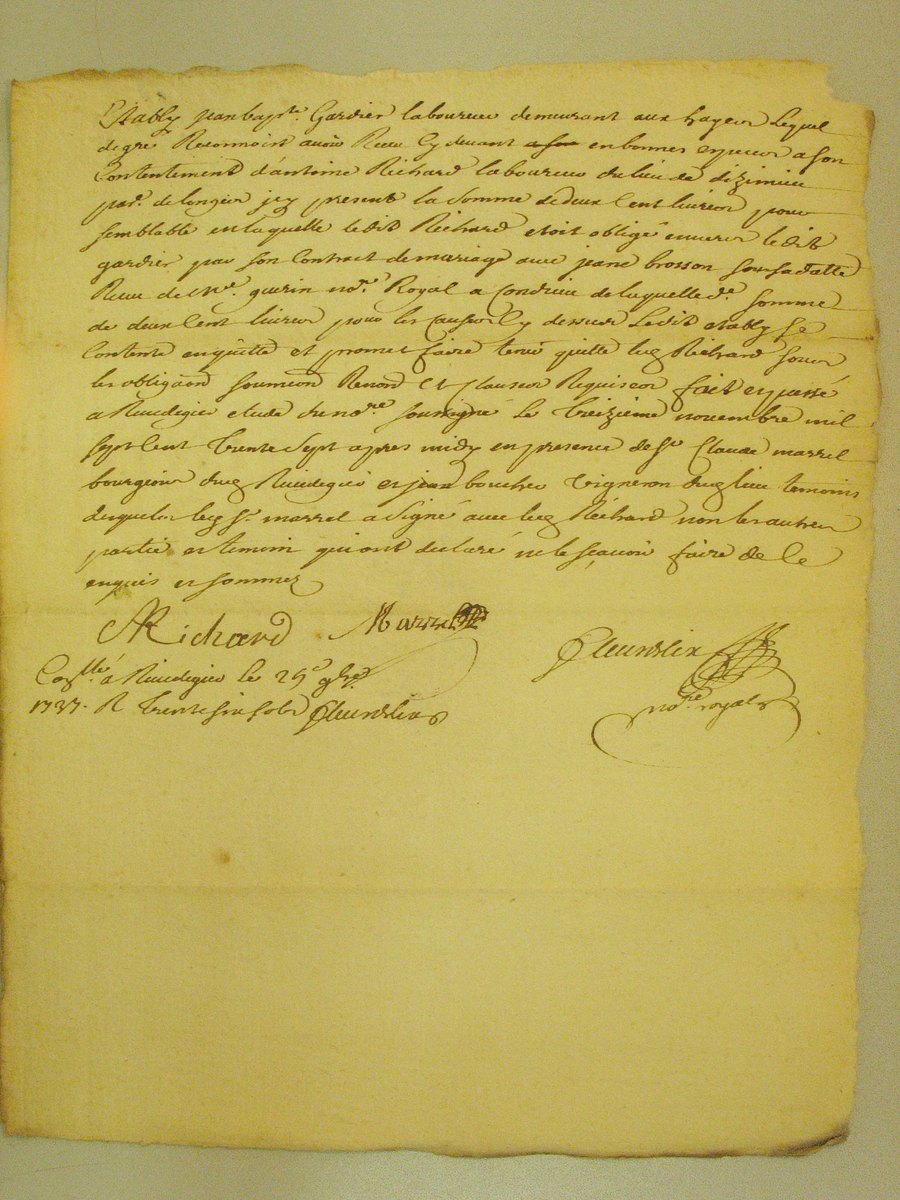 Estably jean bapte. Gardier laboureur demeurant aux hayes Lequel
de gré Reconnoit avoir Receu cy devant a son en bonnes especes a son
Contentement d'antoine Richard laboureur du lieu de dizimieu
par. de longes icy present la Somme de deux Cent livres pour
semblable en laquelle ledit Richard etoit obligé envers ledit
gardier par son Contract de mariage avec jeane brosson sous sa datte
Receu de Me. guerin nore. Royal a Condrieu de laquelle de. somme
de deux Cent livres pour les Causes Cy dessus Ledit etably se
Contente en quitte et promet faire tenir quitte led Richard sous
les obligaons soumions Renons et Clauses Requises fait et passé
a Rivedegier etude du nore. soussigné Le Treizieme novembre mil
sept cent Trente Sept apres midy en presence de Sr Claude marrel
bourgeois dud Rivedegier et jean boucher Vigneron dud lieu temoins
desquels led Sr. marrel a signé avec led Richard non les autres
partie et temoin qui ont declaré ne le sçavoir faire de ce
enquis et sommez
Richard Marrel
fleurdelix
Conllé a Rivedegier le 25e 9bre
1737. R Trente six sols fleurdelix
nore royal